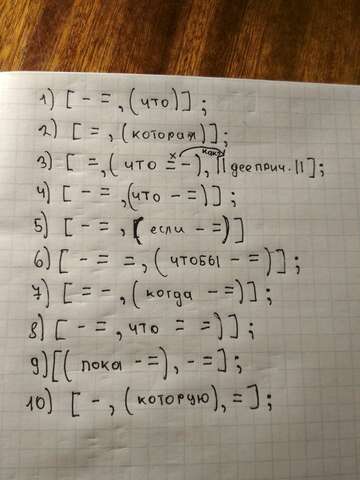 1) [ - = , (что) ] ;
2) [ = , (которая) ] ;
3) [ = , ( что х = - ) , как? || дееприч. || ] ;
4) [ - = , (что - =) ] ;
5) [ - = , ( если - =) ]
6) [ - = = , ( чтобы - = ) ] ;
7) [ = - , ( когда - =) ] ;
8) [ - = , что = =) ] ;
9) [( пока - =) , - = ] ;
10) [ - , ( которую) , = ] ;